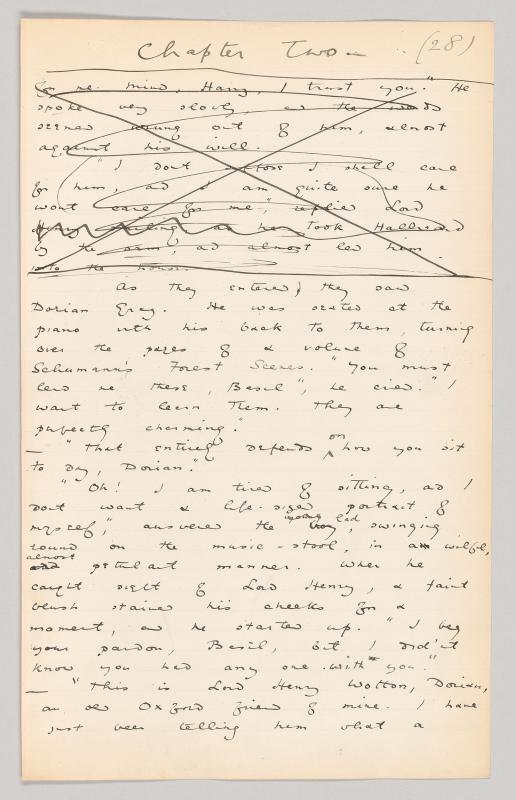 Chapter Two (28)
for me. mind, Harry, I trust you." He
spoke very slowly, and the words
seemed wrung out of him, almost
against his will.
"I don't suppose I shall care
for him, and I am quite sure he
wont care for me", replied Lord
Henry, smiling, as he took Hallward
by the arm, and almost led him
into the house.
As they entered, they saw
Dorian Gray. He was seated at the
piano with his back to them, turning
over the pages of a volume of
Schumann's Forest Scenes. "You must
lend me these, Basil", he cried. "I
want to learn them. They are
perfectly charming."
— "That entirely depends on how you sit
to day, Dorian."
"Oh! I am tired of sitting, and I
dont want a life-sized portrait of
myself," answered the boy lad, swinging
round on the music-stool, in a wilful,
almost and petulant manner. When he
caught sight of Lord Henry, a faint
blush stained his cheeks for a
moment, and he started up. "I beg
your pardon, Basil, but I did'nt
know you had any one with you."
— "This is Lord Henry Wotton, Dorian,
an old Oxford friend of mine. I have
just been telling him what a